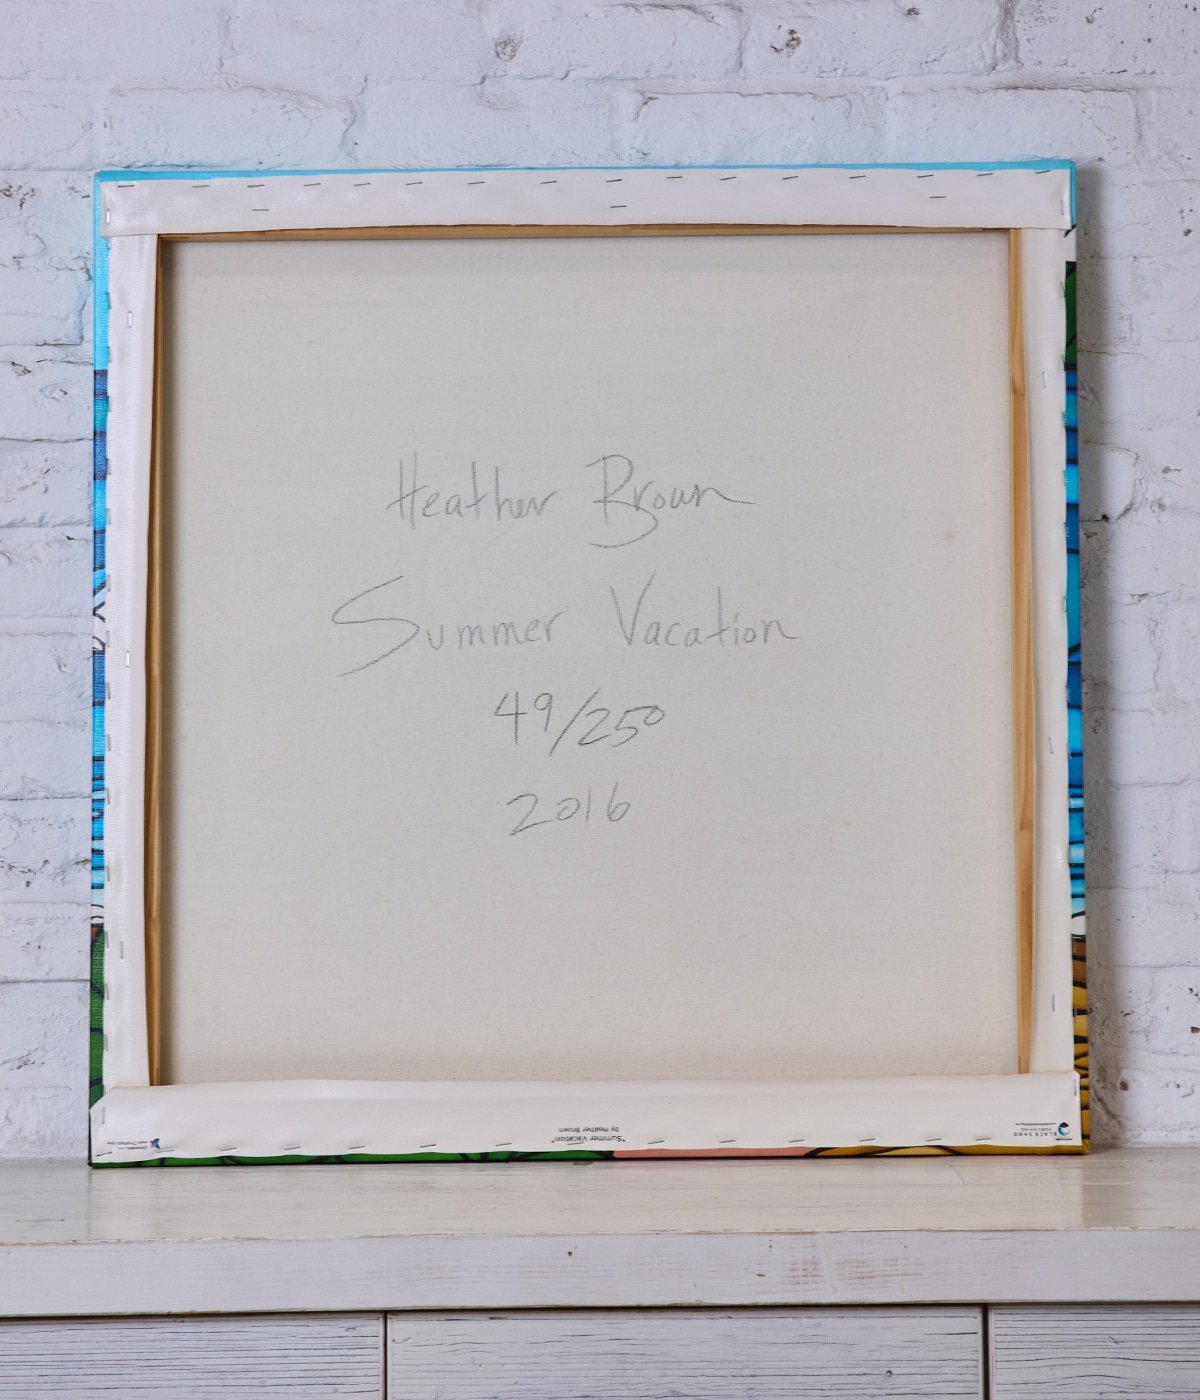 Heather Brown
Summer Vacation
49/250
2016
"Summer Vacation"
by Heather Brown
BLACK SAND
PUBLISHING